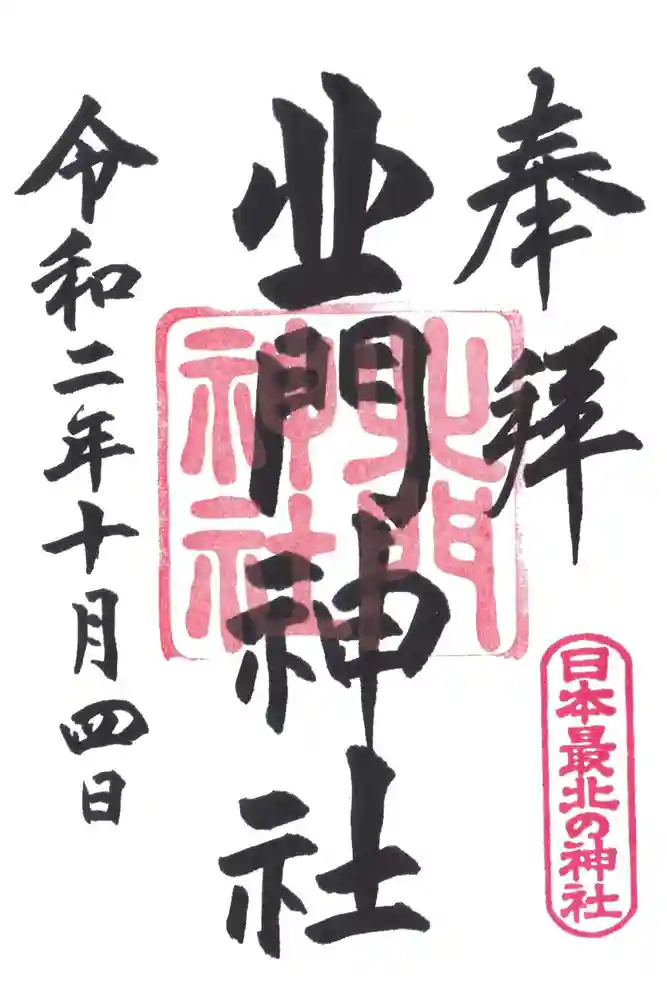 奉拝
日本最北の神社
北門神社
北門
神社
令和二年十月四日